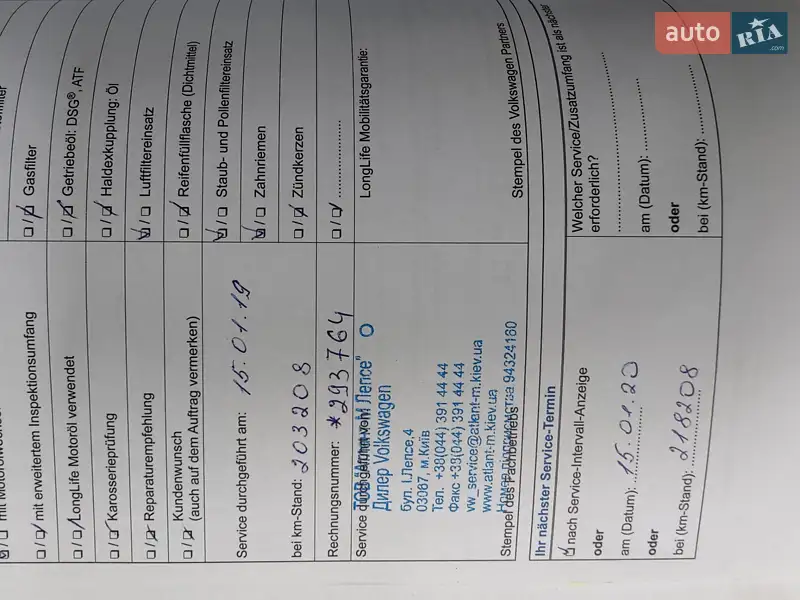 auto RIA.com
☑/☐ mit Motorölwechsel
☐/☑ mit erweitertem Inspektionsumfang
☐/☑ LongLife Motoröl verwendet
☐/☑ Karosserieprüfung
☐/☑ Reparaturempfehlung
☐/☑ Kundenwunsch
(auch auf dem Auftrag vermerken)
Service durchgeführt am: 15.01.19
bei km-Stand: 203208
Rechnungsnummer: *293764
Service durchgeführt von:
Дилер Volkswagen
бул. І.Лепсе,4
03067, м.Київ
Тел. +38(044) 391 44 44
Факс +38(044) 391 44 44
vw_service@atlant-m.kiev.ua
www.atlant-m.kiev.ua
94324160
Stempel des Fachbetriebs
☐/☑ Gasfilter
☐/☑ Getriebeöl: DSG®, ATF
☐/☑ Haldexkupplung: Öl
☑/☐ Luftfiltereinsatz
☐/☑ Reifenfüllflasche (Dichtmittel)
☑/☐ Staub- und Pollenfiltereinsatz
☑/☐ Zahnriemen
☐/☑ Zündkerzen
☐/☑ ....................
LongLife Mobilitätsgarantie:
Stempel des Volkswagen Partners
Ihr nächster Service-Termin
☑ nach Service-Intervall-Anzeige
oder
am (Datum): 15.01.20
oder
bei (km-Stand): 218208
Welcher Service/Zusatzumfang ist als nächstes
erforderlich?
....................
am (Datum): ....................
oder
bei (km-Stand): ....................